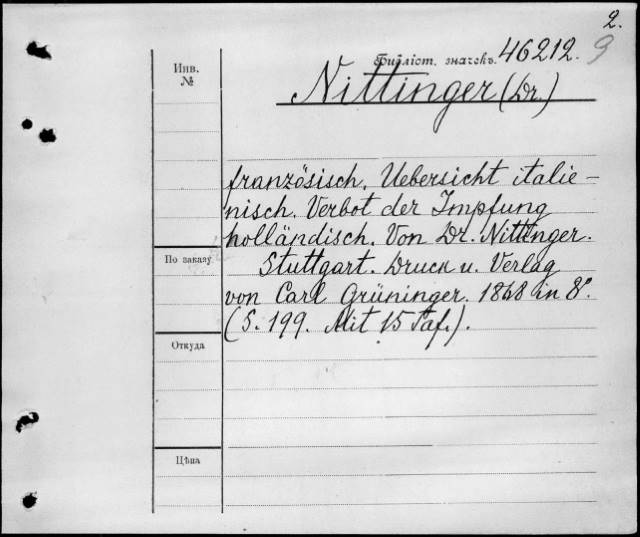 2.
Библіот. значекъ. 46212.
9
Инв.
№
Nittinger (Dr.)
französisch. Uebersicht italie-
nisch. Verbot der Impfung
holländisch. Von Dr. Nittinger.
По заказу
Stuttgart. Druck u. Verlag
von Carl Grüninger. 1868 in 8°.
(S. 199. Mit 15 Taf.).
Откуда
Цѣна